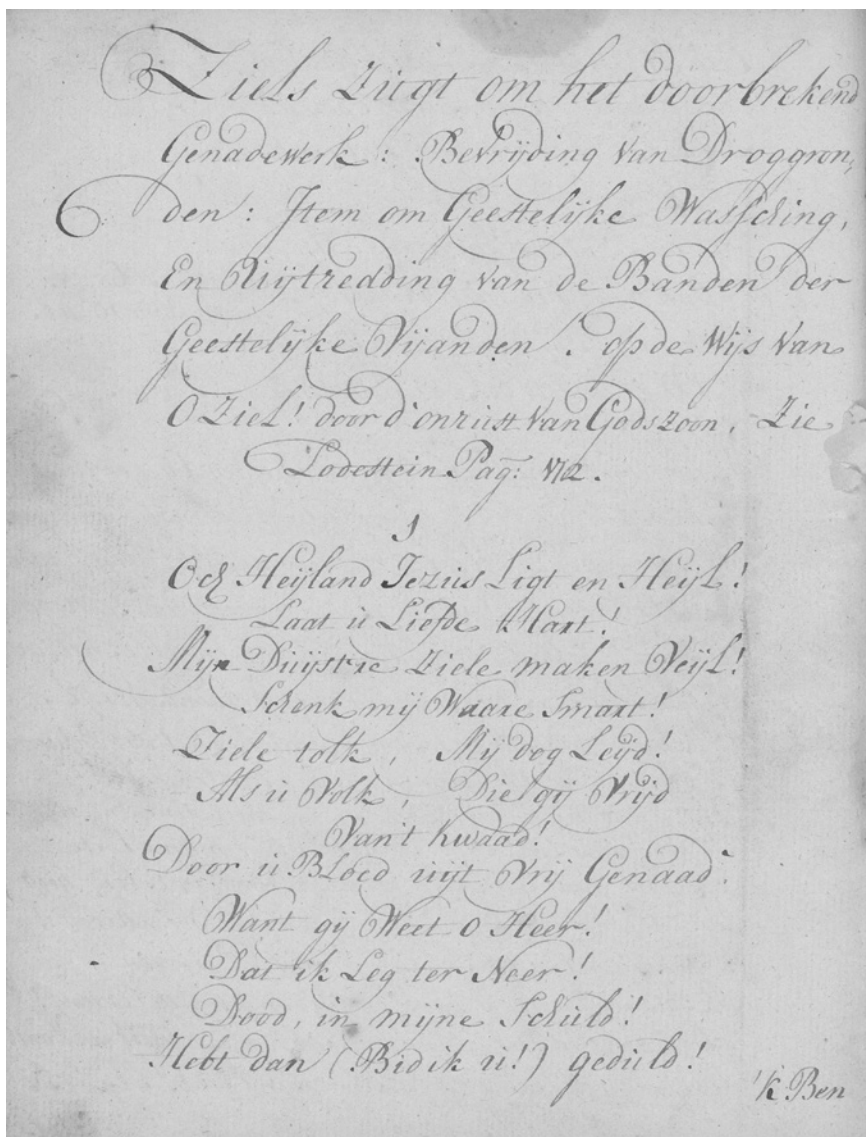 Ziels Zugt om het doorbrekend
Genadewerk : Bevrijding van Droggron,
den : Item om Geestelijke Wassching,
En Uijtredding van de Banden der
Geestelijke Vijanden . op de Wijs van
O Ziel! door d'onrust van Gods Zoon, Zie
Lodestein Pag:
1
Och Heijland Jezus Ligt en Heijl!
Laat u Liefde Hart!
Mijn Duijstre Ziele maken Veijl!
Schenk mij Waare Smart!
Ziele tolk, Mij dog Leijd!
Als u Volk, Die gij Vrijd
Van't kwaad!
Door u Bloed uijt Vrij Genaad.
Want gij Weet O Heer!
Dat ik Leg ter Neer!
Dood, in mijne Schuld!
Hebt dan (Bid ik u!) geduld!
'k Ben